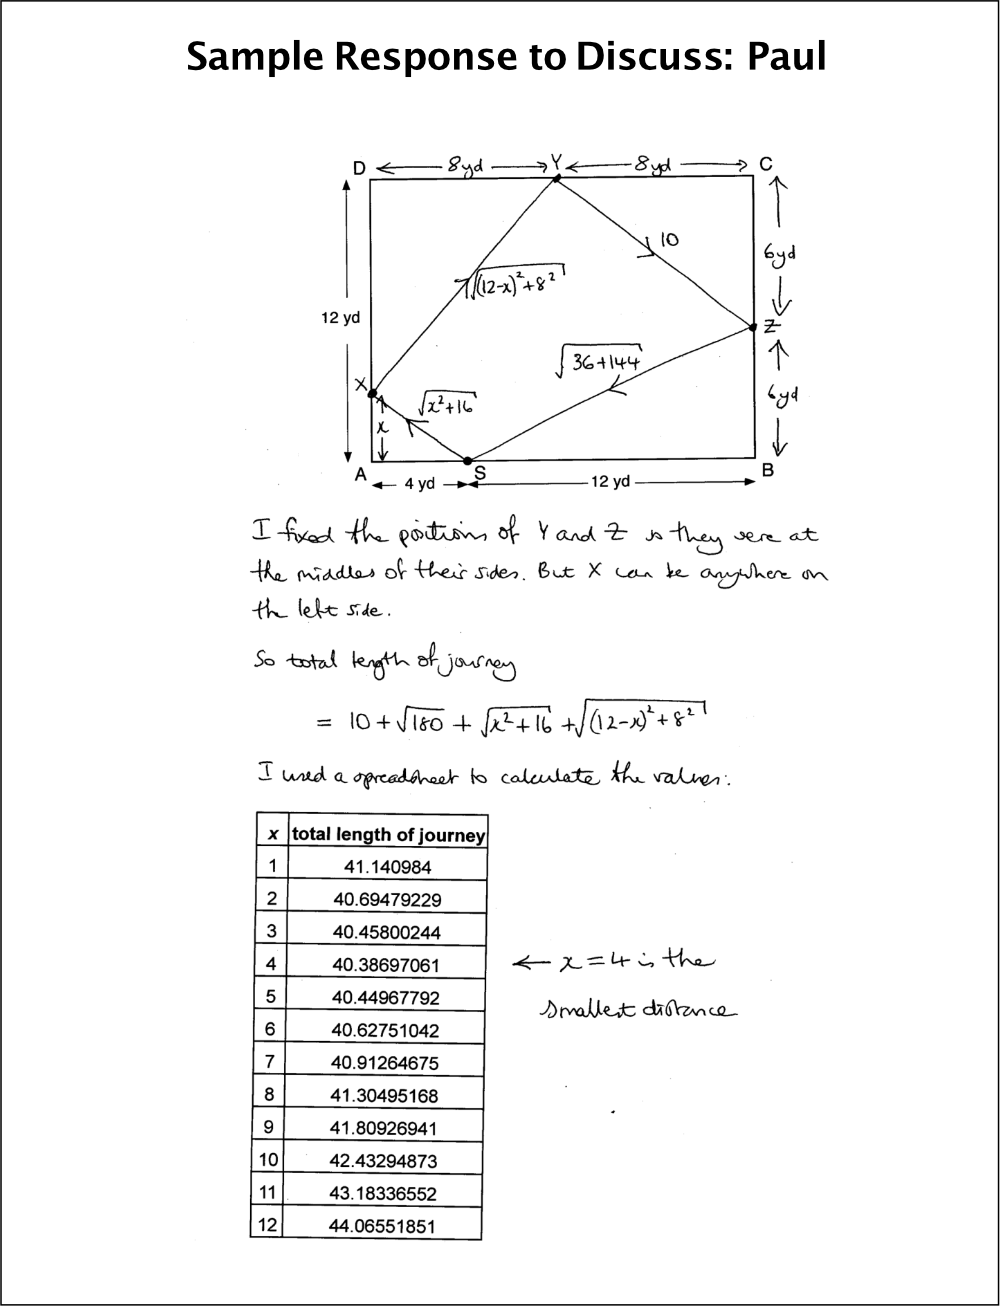 Sample Response to Discuss: Paul
D 8yd Y 8yd C
10
6yd
√((12-x)²+8²)
12 yd
Z
√(36+144)
X
√(x²+16)
6yd
x
A 4 yd S 12 yd B
I fixed the positions of Y and Z so they were at
the middles of their sides. But X can be anywhere on
the left side.
So total length of journey
= 10 + √180 + √(x²+16) + √((12-x)²+8²)
I used a spreadsheet to calculate the values:
x total length of journey
1 41.140984
2 40.69479229
3 40.45800244
4 40.38697061 ← x = 4 is the
smallest distance
5 40.44967792
6 40.62751042
7 40.91264675
8 41.30495168
9 41.80926941
10 42.43294873
11 43.18336552
12 44.06551851